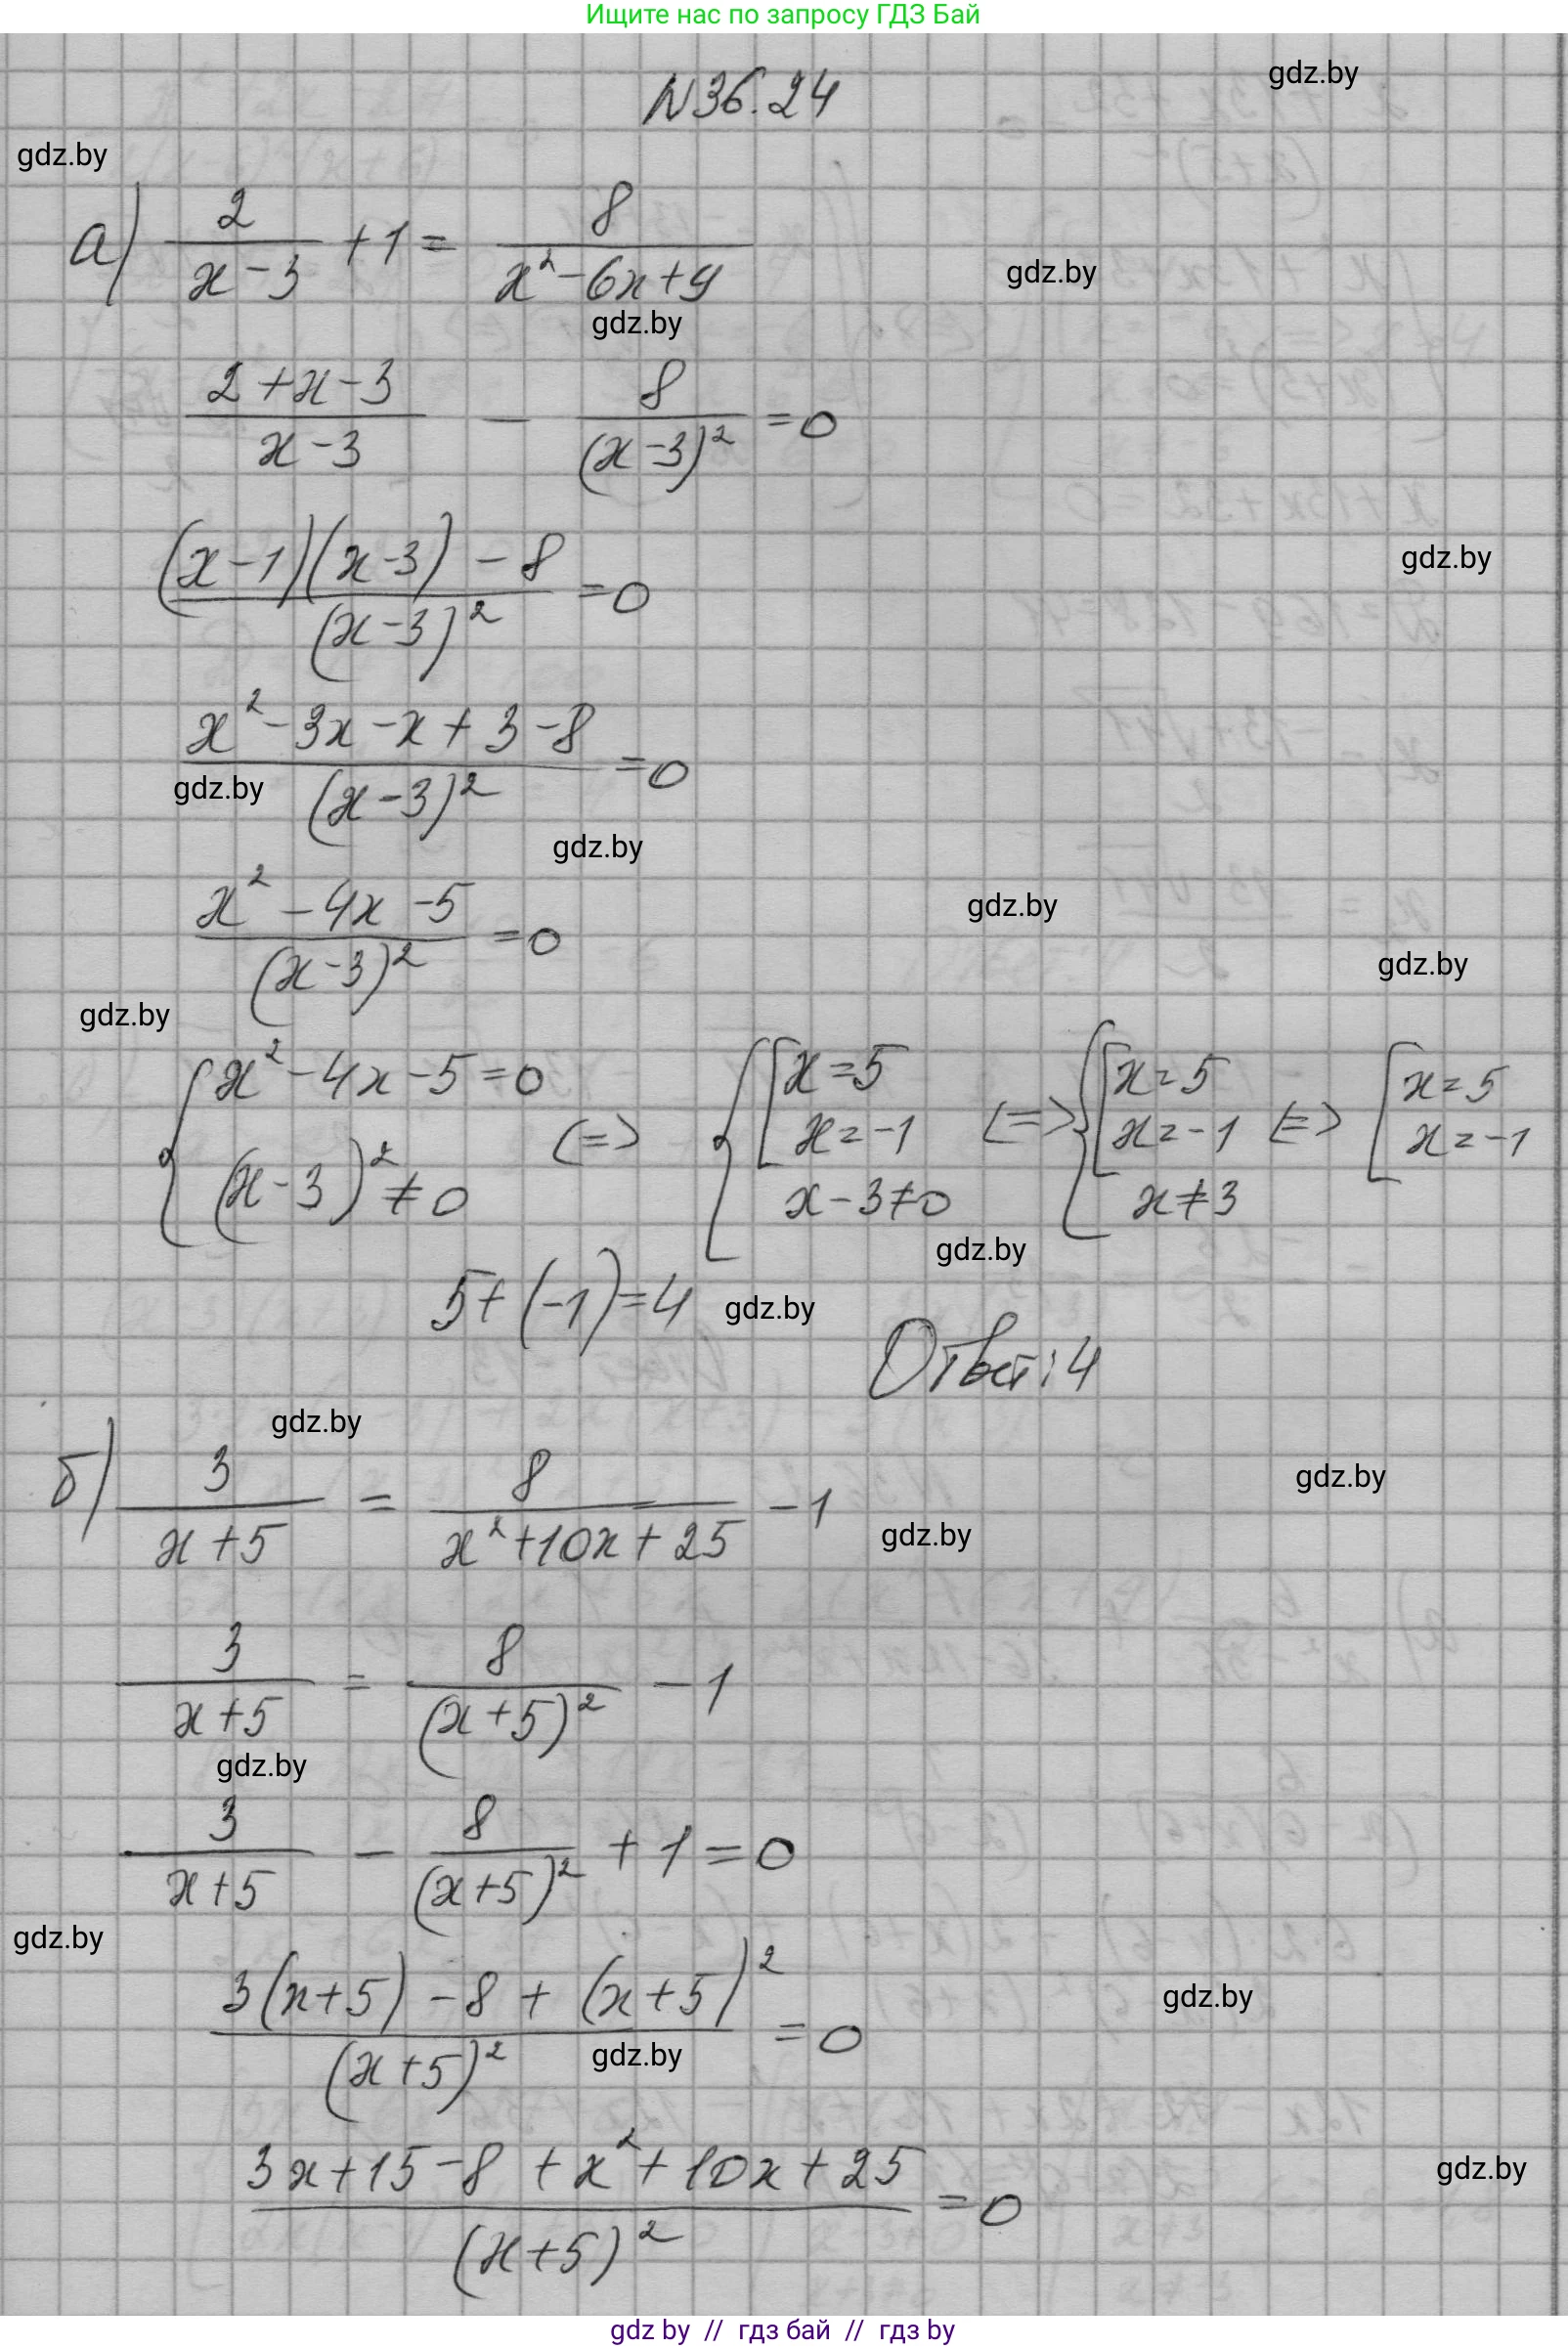 Ищите нас по запросу ГДЗ Бай
N36.24
gdz.by
gdz.by
а) 2/(x-3) + 1 = 8/(x²-6x+9)
gdz.by
gdz.by
(2+x-3)/(x-3) - 8/(x-3)² = 0
((x-1)(x-3) - 8)/(x-3)² = 0
gdz.by
(x²-3x-x+3-8)/(x-3)² = 0
gdz.by
gdz.by
(x²-4x-5)/(x-3)² = 0
gdz.by
gdz.by
gdz.by
{ x²-4x-5=0 (x-3)²≠0 <=> { [ x=5 x=-1 x-3≠0 <=> { [ x=5 x=-1 x≠3 <=> [ x=5 x=-1
gdz.by
5+(-1)=4
gdz.by
Ответ: 4
gdz.by
б) 3/(x+5) = 8/(x²+10x+25) - 1
gdz.by
gdz.by
3/(x+5) = 8/(x+5)² - 1
gdz.by
3/(x+5) - 8/(x+5)² + 1 = 0
gdz.by
(3(x+5) - 8 + (x+5)²)/(x+5)² = 0
gdz.by
gdz.by
(3x+15-8+x²+10x+25)/(x+5)² = 0
gdz.by
gdz by // гдз бай // гдз by